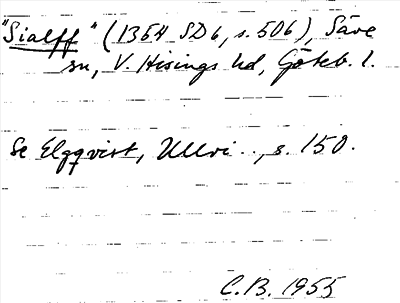 "Sialff" (1354 SD6, s. 506), Säve
sn, V. Hisings hd, Göteb. l.
Se Elgqvist, Ullvi.., s. 150.
C.B. 1955